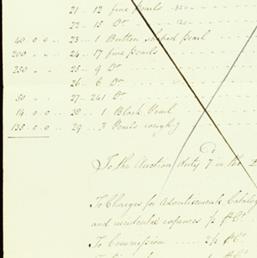 21 - 12 fine Pearls
22 - 15 Do
40 .. 0 .. 0 .. 23 .. 1 Button shaped pearl
200 24 - 17 fine Pearls
250 25 - 9 Do
26 - 6 Do
50 27 - 241 Do
14 .. 0 .. 0 .. 28 .. 1 Black Pearl
135 .. 0 .. 0 .. 29 .. 3 Pearls
To the Auction duty 7 in the
To Charges for Advertisements Catalog
and incidental expences
To Commission